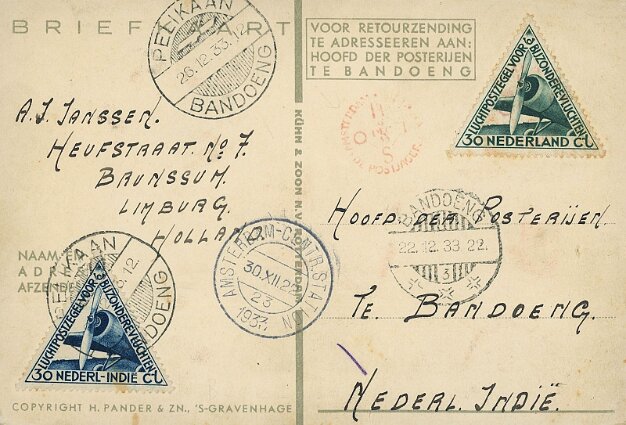 BRIEFKAART
PELIKAAN
26.12.33.12
BANDOENG
VOOR RETOURZENDING
TE ADRESSEEREN AAN:
HOOFD DER POSTERIJEN
TE BANDOENG
LUCHTPOSTZEGEL VOOR
BIJZONDERE VLUCHTEN
30 NEDERLAND Ct
A.J. JANSSEN.
HEUFSTRAAT No 7.
BRUNSSUM.
LIMBURG.
HOLLAND
KÜHN & ZOON N.V. ROTTERDAM
BANDOENG
22.12.33 22.
3
HOOFD DER POSTERIJEN
TE BANDOENG.
NEDERL. INDIË.
AMSTERDAM-CENTR.STATION
30 XII 2
23
1933
NAAM EN
ADRES
AFZENDER
BANDOENG
LUCHTPOSTZEGEL VOOR
BIJZONDERE VLUCHTEN
30 NEDERL-INDIË Ct
COPYRIGHT H. PANDER & ZN., 'S-GRAVENHAGE